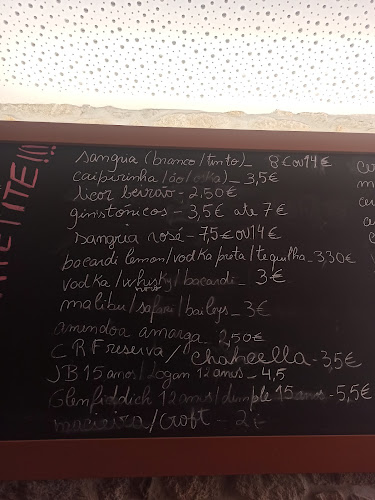 sangria (branco/tinto) - 8€ ou 14€
caipirinha/ão/oska - 3,5€
licor beirão - 2,50€
ginstónicos - 3,5€ ate 7€
sangria rosé - 7,5€ ou 14€
bacardi lemon/vodka preta/tequilha - 3.30€
vodka/whisky/bacardi - 3€
malibu/safari/baileys - 3€
amendoa amarga - 2,50€
CRF reserva/ - 3,5€
JB 15 anos/Logan 12 anos - 4,5
Glenfiddich 12 anos/dimple 15 anos - 5,5€
macieira/Croft - 2